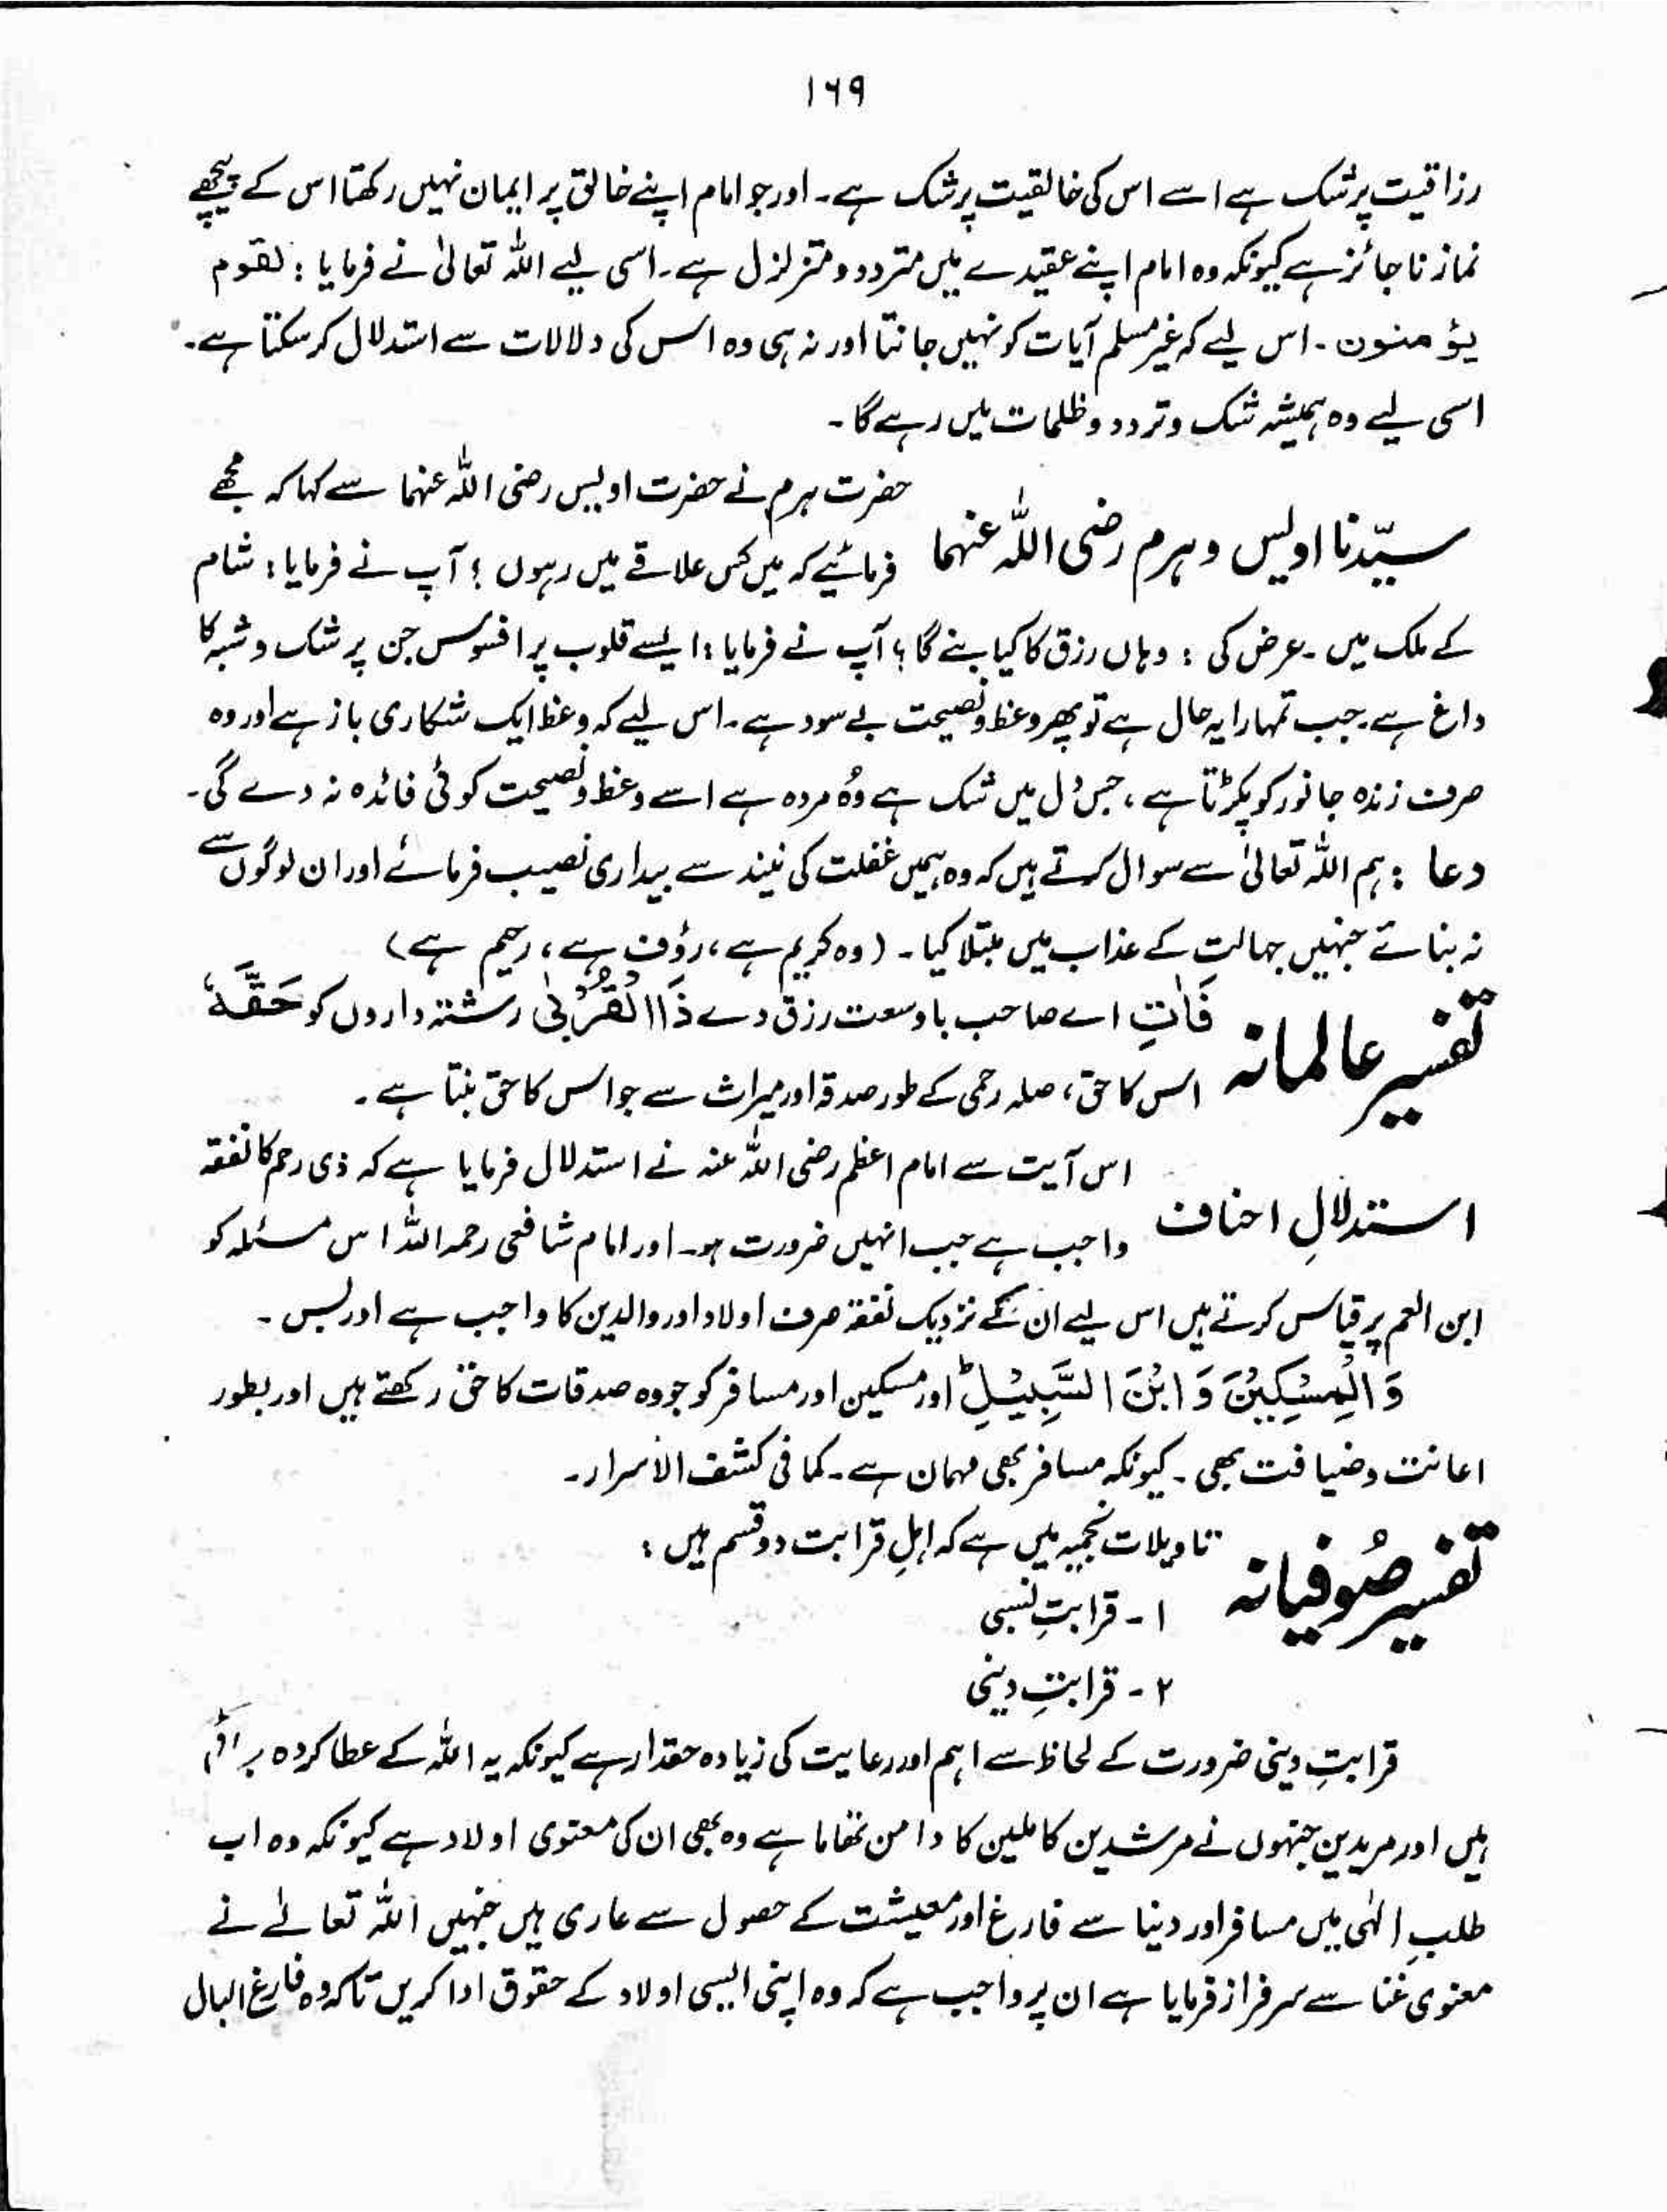 ۱۶۹
رزاقیت پر شک ہے اسے اس کی خالقیت پر شک ہے۔ اور جو امام اپنے خالق پر ایمان نہیں رکھتا اس کے پیچھے
نماز ناجائز ہے کیونکہ وہ امام اپنے عقیدے میں متردد و متزلزل ہے۔ اسی لیے اللہ تعالیٰ نے فرمایا : لقوم
یؤمنون ۔ اس لیے کہ غیر مسلم آیات کو نہیں جانتا اور نہ ہی وہ اس کی دلالات سے استدلال کر سکتا ہے۔
اسی لیے وہ ہمیشہ شک و تردد و ظلمات میں رہے گا ۔
سیّدنا اویس و ہرم رضی اللہ عنہما
حضرت ہرم نے حضرت اویس رضی اللہ عنہما سے کہا کہ مجھے
فرمائیے کہ میں کس علاقے میں رہوں ؟ آپ نے فرمایا : شام
کے ملک میں ۔ عرض کی : وہاں رزق کا کیا بنے گا ؟ آپ نے فرمایا : ایسے قلوب پر افسوس جن پر شک و شبہ کا
داغ ہے۔ جب تمہارا یہ حال ہے تو پھر وعظ و نصیحت بے سود ہے۔ اس لیے کہ وعظ ایک شکاری باز ہے اور وہ
صرف زندہ جانور کو پکڑتا ہے ، جس دل میں شک ہے وُہ مردہ ہے اسے وعظ و نصیحت کوئی فائدہ نہ دے گی۔
دعا : ہم اللہ تعالیٰ سے سوال کرتے ہیں کہ وہ ہمیں غفلت کی نیند سے بیداری نصیب فرمائے اور ان لوگوں سے
نہ بنائے جنہیں جہالت کے عذاب میں مبتلا کیا ۔ (وہ کریم ہے ، رؤف ہے ، رحیم ہے)
تفسیر عالمانہ
فَاٰتِ اے صاحب با وسعت رزق دے ذَا الْقُرْبٰی رشتہ داروں کو حَقَّهٗ
اس کا حق ، صلہ رحمی کے طور صدقہ اور میراث سے جو اس کا حق بنتا ہے ۔
استدلالِ احناف
اس آیت سے امام اعظم رضی اللہ عنہ نے استدلال فرمایا ہے کہ ذی رحم کا نفقہ
واجب ہے جب انہیں ضرورت ہو۔ اور امام شافعی رحمہ اللہ اس مسئلہ کو
ابن العم پر قیاس کرتے ہیں اس لیے ان کے نزدیک نفقہ صرف اولاد اور والدین کا واجب ہے اور بس ۔
وَالْمِسْكِيْنَ وَ ابْنَ السَّبِيْلِ ؕ اور مسکین اور مسافر کو جو وہ صدقات کا حق رکھتے ہیں اور بطور
اعانت و ضیافت بھی ۔ کیونکہ مسافر بھی مہمان ہے۔ کما فی کشف الاسرار۔
تفسیر صُوفیانہ
تاویلات نجمیہ میں ہے کہ اہلِ قرابت دو قسم ہیں :
۱ - قرابتِ نسبی
۲ - قرابتِ دینی
قرابتِ دینی ضرورت کے لحاظ سے اہم اور رعایت کی زیادہ حقدار ہے کیونکہ یہ اللہ کے عطا کردہ
ہیں اور مریدین جنہوں نے مرشدین کاملین کا دامن تھاما ہے وہ بھی ان کی معنوی اولاد ہے کیونکہ وہ اب
طلبِ الٰہی میں مسافر اور دنیا سے فارغ اور معیشت کے حصول سے عاری ہیں جنہیں اللہ تعالےٰ نے
معنوی غنا سے سرفراز فرمایا ہے ان پر واجب ہے کہ وہ اپنی ایسی اولاد کے حقوق ادا کریں تاکہ وہ فارغ البال